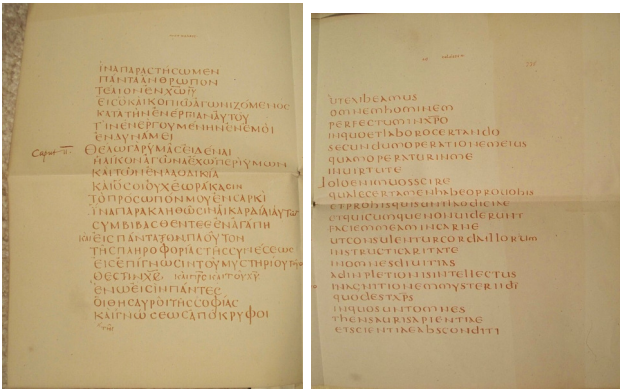 ΙΝΑΠΑΡΑCΤΗCΩΜΕΝ
ΠΑΝΤΑΑΝΘΡΩΠΟΝ
ΤΕΛΙΟΝΕΝΧΩΙΥ
ΕΙCΟΚΑΙΚΟΠΙΩΑΓΩΝΙΖΟΜΕΝΟC
ΚΑΤΑΤΗΝΕΝΕΡΓΙΑΝΑΥΤΟΥ
ΤΗΝΕΝΕΡΓΟΥΜΕΝΗΝΕΝΕΜΟΙ
ΕΝΔΥΝΑΜΕΙ
Caput II. ΘΕΛΩΓΑΡΥΜΑCΕΙΔΕΝΑΙ
ΗΛΙΚΟΝΑΓΩΝΑΕΧΩΠΕΡΙΥΜΩΝ
ΚΑΙΤΩΝΕΝΛΑΟΔΙΚΙΑ
ΚΑΙΟCΟΙΟΥΧΕΩΡΑΚΑCΙΝ
ΤΟΠΡΟCΩΠΟΝΜΟΥΕΝCΑΡΚΙ
ΙΝΑΠΑΡΑΚΛΗΘΩCΙΝΑΙΚΑΡΔΙΑΙΑΥΤΩΝ
CΥΜΒΙΒΑCΘΕΝΤΕCΕΝΑΓΑΠΗ
ΚΑΙΕΙCΠΑΝΤΑΤΟΝΠΛΟΥΤΟΝ
ΤΗCΠΛΗΡΟΦΟΡΙΑCΤΗCCΥΝΕCΕΩC
ΕΙCΕΠΙΓΝΩCΙΝΤΟΥΜΥCΤΗΡΙΟΥΤΟΥ
ΘΥΕCΤΙΝΧC
ΕΝΩΕΙCΙΝΠΑΝΤΕC
ΟΙΘΗCΑΥΡΟΙΤΗCCΟΦΙΑC
ΚΑΙΓΝΩCΕΩCΑΠΟΚΡΥΦΟΙ
UTEXIBEAMUS
OMNEMHOMINEM
PERFECTUMINXPO
INQUOETLABOROCERTANDO
SECUNDUMOPERATIONEMEIUS
QUAMOPERATURINME
INUIRTUTE
UOLOENIMUOSSCIRE
QUALECERTAMENHABEOPROUOBIS
ETPROHISQUISUNTLAODICIAE
ETQUICUMQUENONUIDERUNT
FACIEMMEAMINCARNE
UTCONSULENTURCORDAILLORUM
INSTRUCTICARITATE
INOMNESDIUITIAS
ADINPLETIONISINTELLECTUS
INAGNITIONEMMYSTERIIDEI
QUODESTXPS
INQUOSUNTOMNES
THENSAURISAPIENTIAE
ETSCIENTIAEABSCONDITI